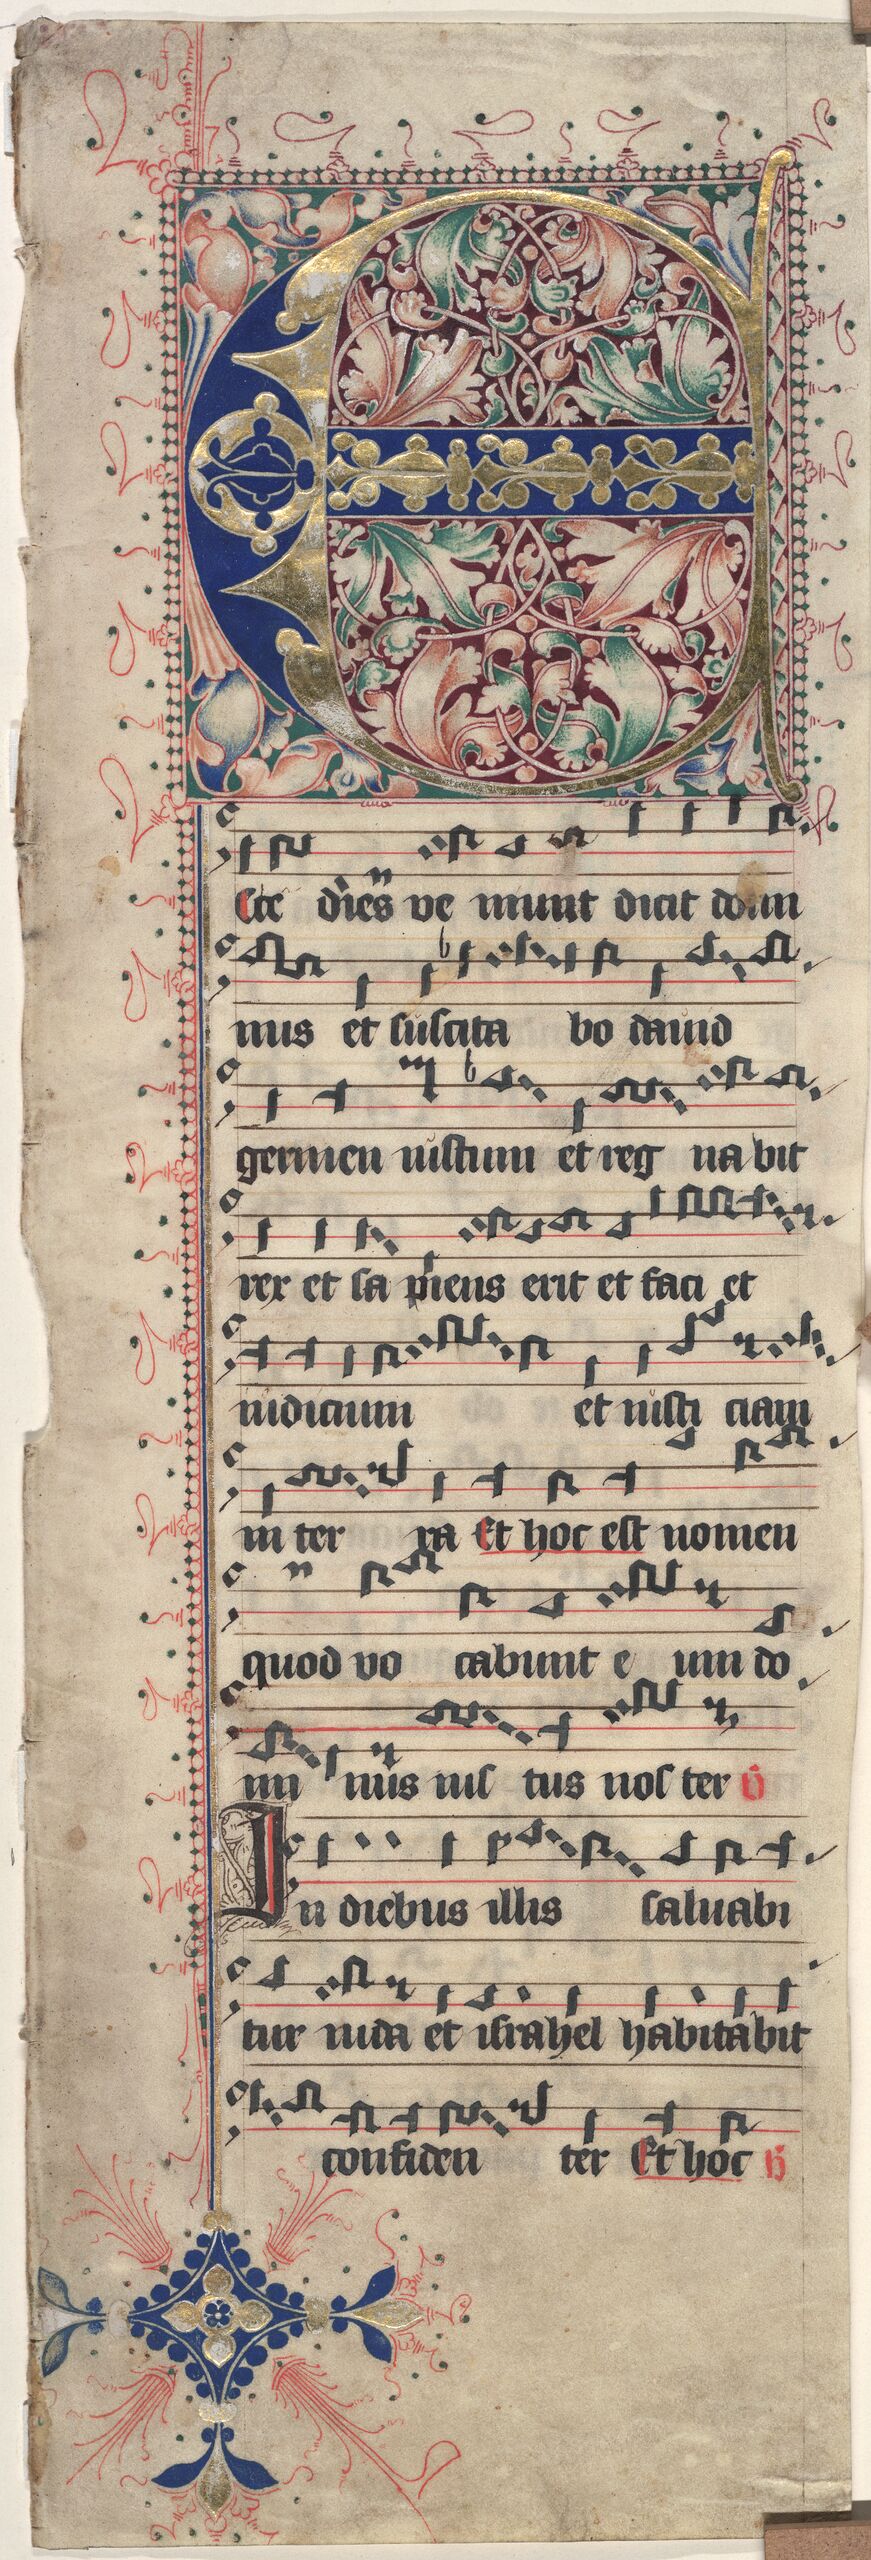 Ecce dies ve niunt dicit domi
nus et suscita bo dauid
germen iustum et reg na bit
rex et sa piens erit et faci et
iudicium et iusti ciam
in ter ra Et hoc est nomen
quod vo cabunt e um do
mi nus ius tus nos ter v
In diebus illis saluabi
tur iuda et israhel habitabit
confiden ter Et hoc